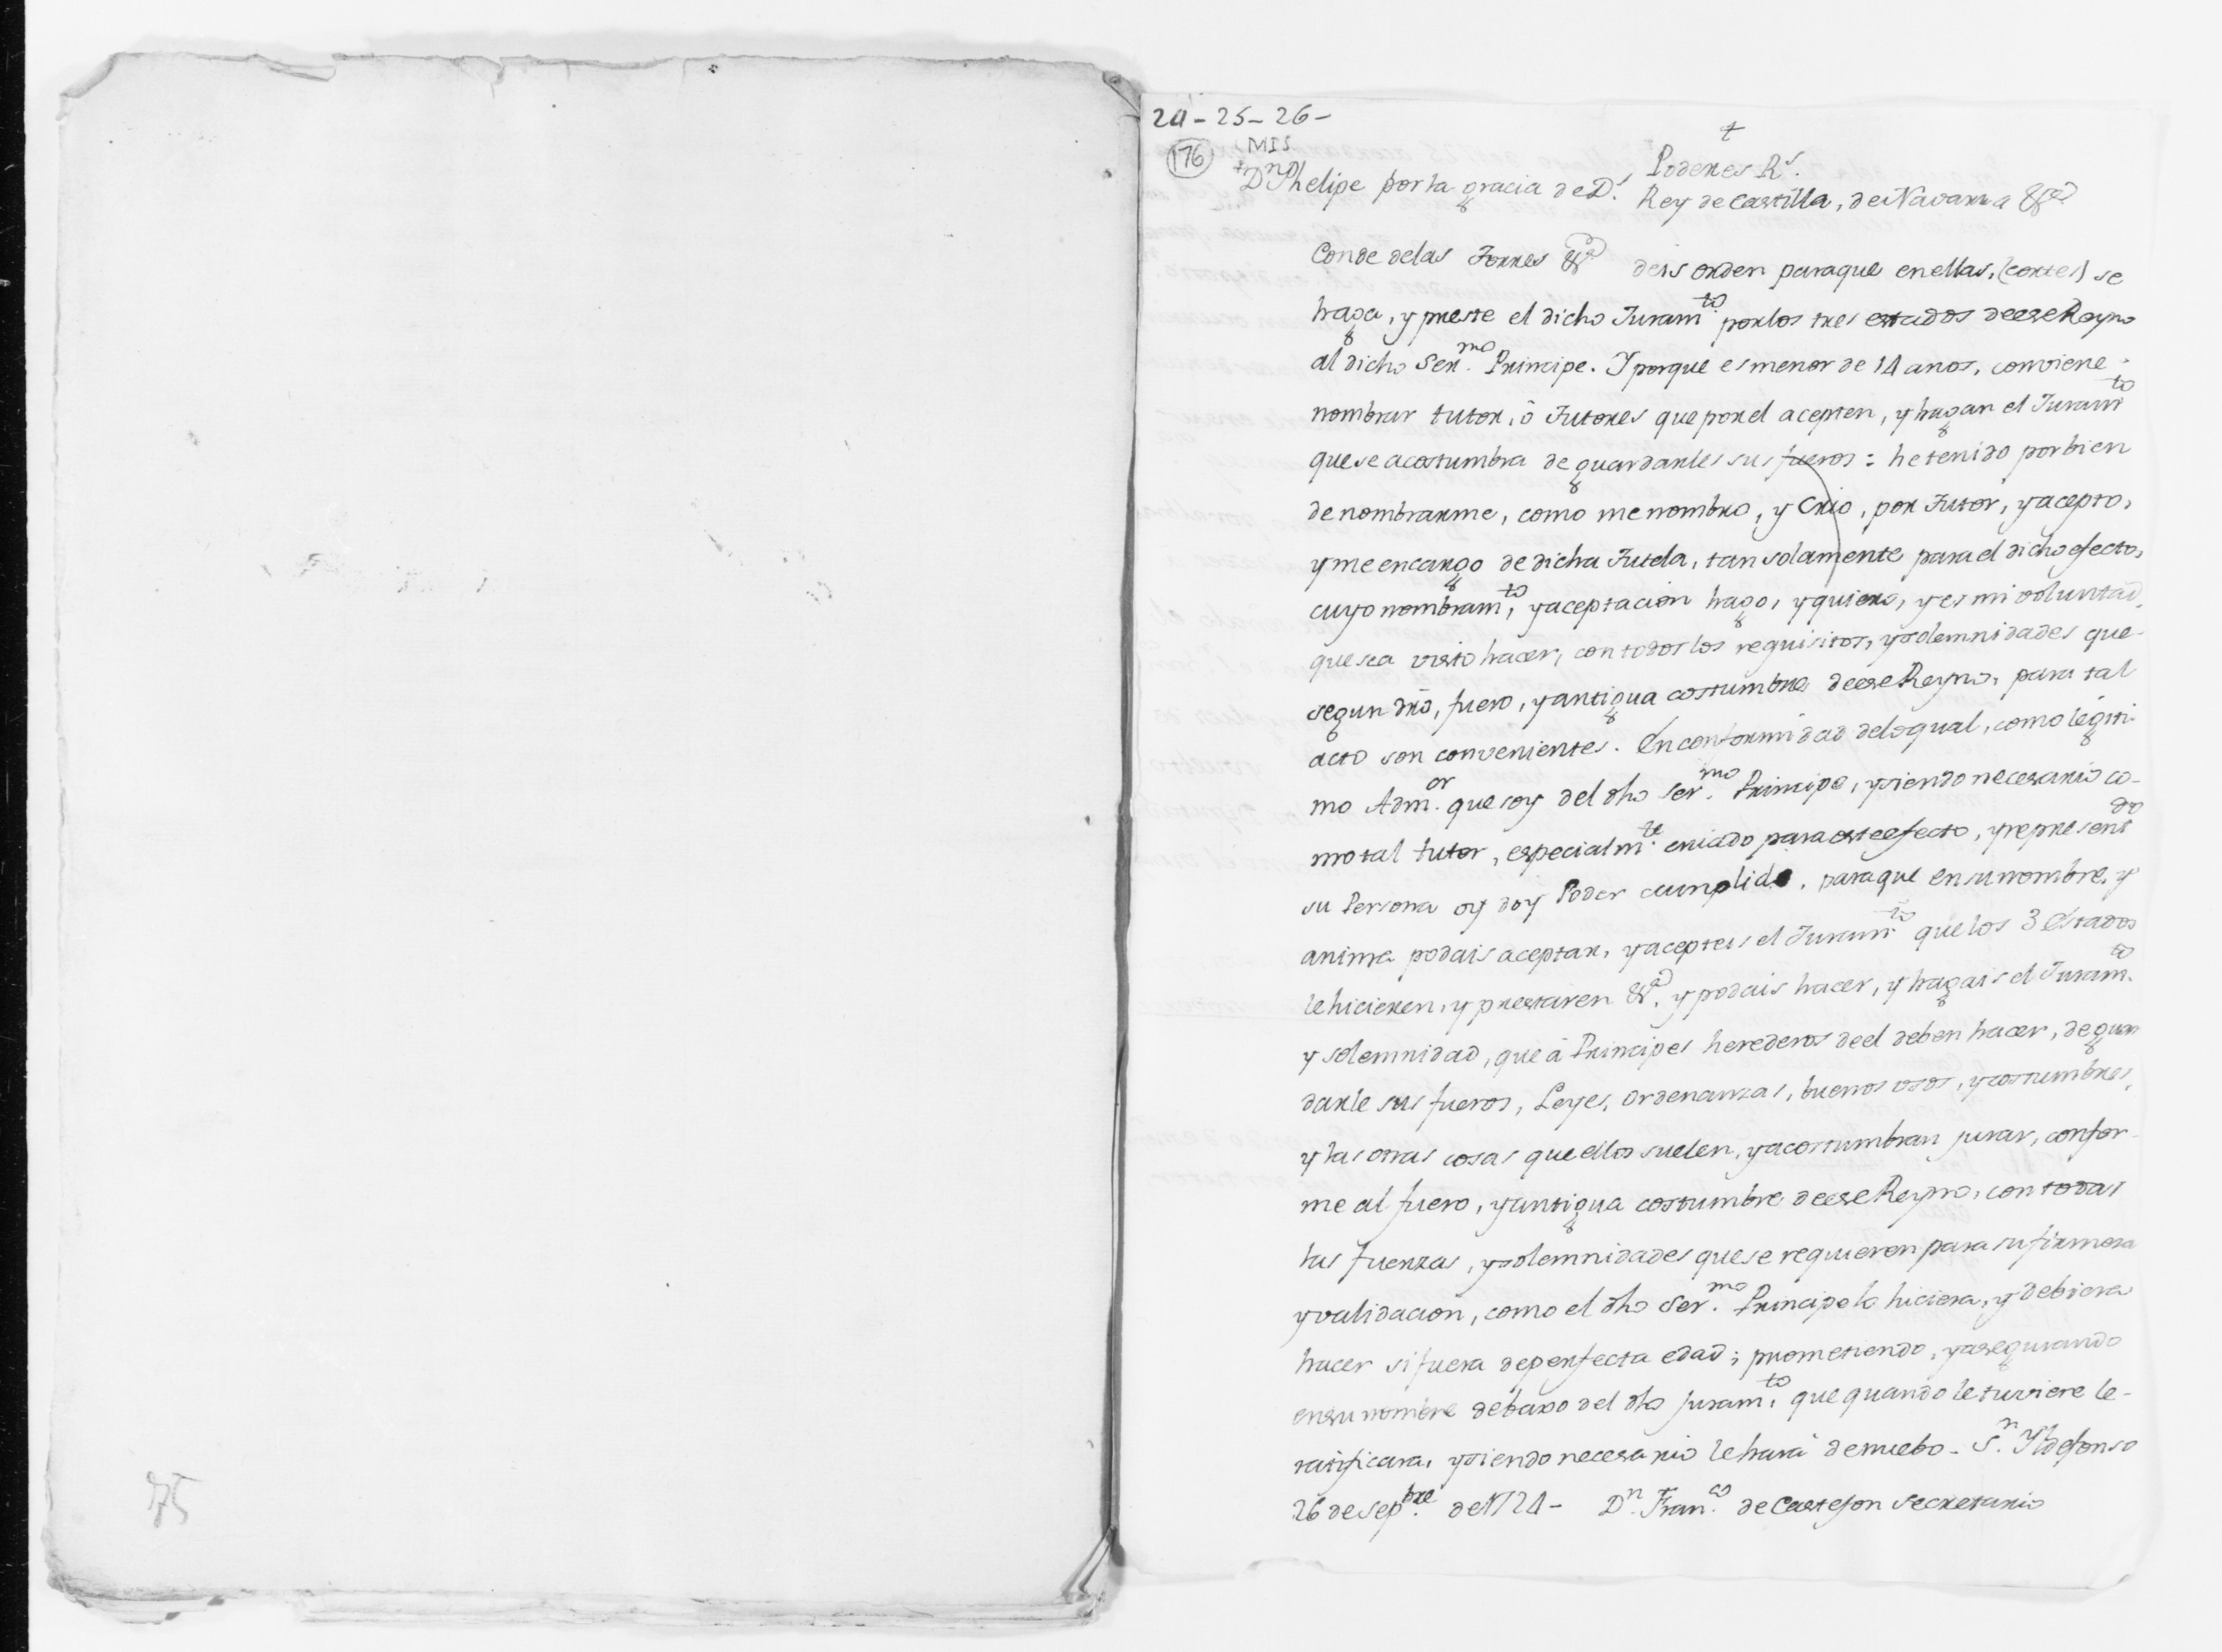 24 - 25 - 26 -
176 MIS
†
Poderes R.s
Dn Phelipe por la gracia de D.s Rey de Castilla, de Navarra &a
Conde de las Torres &a deis orden para que en ellas, (cortes) se
haga, y preste el dicho Juram.to por los tres estados de ese Reyno
al dicho Ser.mo Principe. Y porque es menor de 14 anos, conviene
nombrar tutor, ô Tutores que por el acepten, y hagan el Juram.to
que se acostumbra de guardarles sus fueros: he tenido por bien
de nombrarme, como me nombro, y Crio, por Tutor, y acepto,
y me encargo de dicha Tutela, tan solamente para el dicho efecto,
cuyo nombram.to, y aceptacion hago, y quiero, y es mi voluntad,
que sea visto hacer, con todos los requisitos, y solemnidades que
segun dro, fuero, y antigua costumbre de ese Reyno, para tal
acto son convenientes. En conformidad de lo qual, como legiti-
mo Adm.or que soy del dho Ser.mo Principe, y siendo necesario co-
mo tal tutor, especialm.te criado para este efecto, y represent.do
su Persona oy doy Poder cumplido, para que en su nombre, y
anima podais aceptar, y acepteis el Juram.to que los 3 Estados
le hicieren, y prestaren &a. y podais hacer, y hagais el Juram.to
y solemnidad, que â Principes herederos de el deben hacer, de guar
darle sus fueros, Leyes, ordenanzas, buenos usos, y costumbres,
y las otras cosas que ellos suelen, y acostumbran jurar, confor-
me al fuero, y antigua costumbre de ese Reyno, con todas
las fuerzas, y solemnidades que se requieren para su firmeza
y validacion, como el dho Ser.mo Principe lo hiciera, y debiera
hacer si fuera de perfecta edad; prometiendo, y asegurando
en su nombre debaxo del dho juram.to que quando le tuviere le-
ratificara, y siendo necesario le hará de nuebo - S.n Yldefonso
26 de Sep.bre de 1724 - D.n Fran.co de Castejon Secretario
75